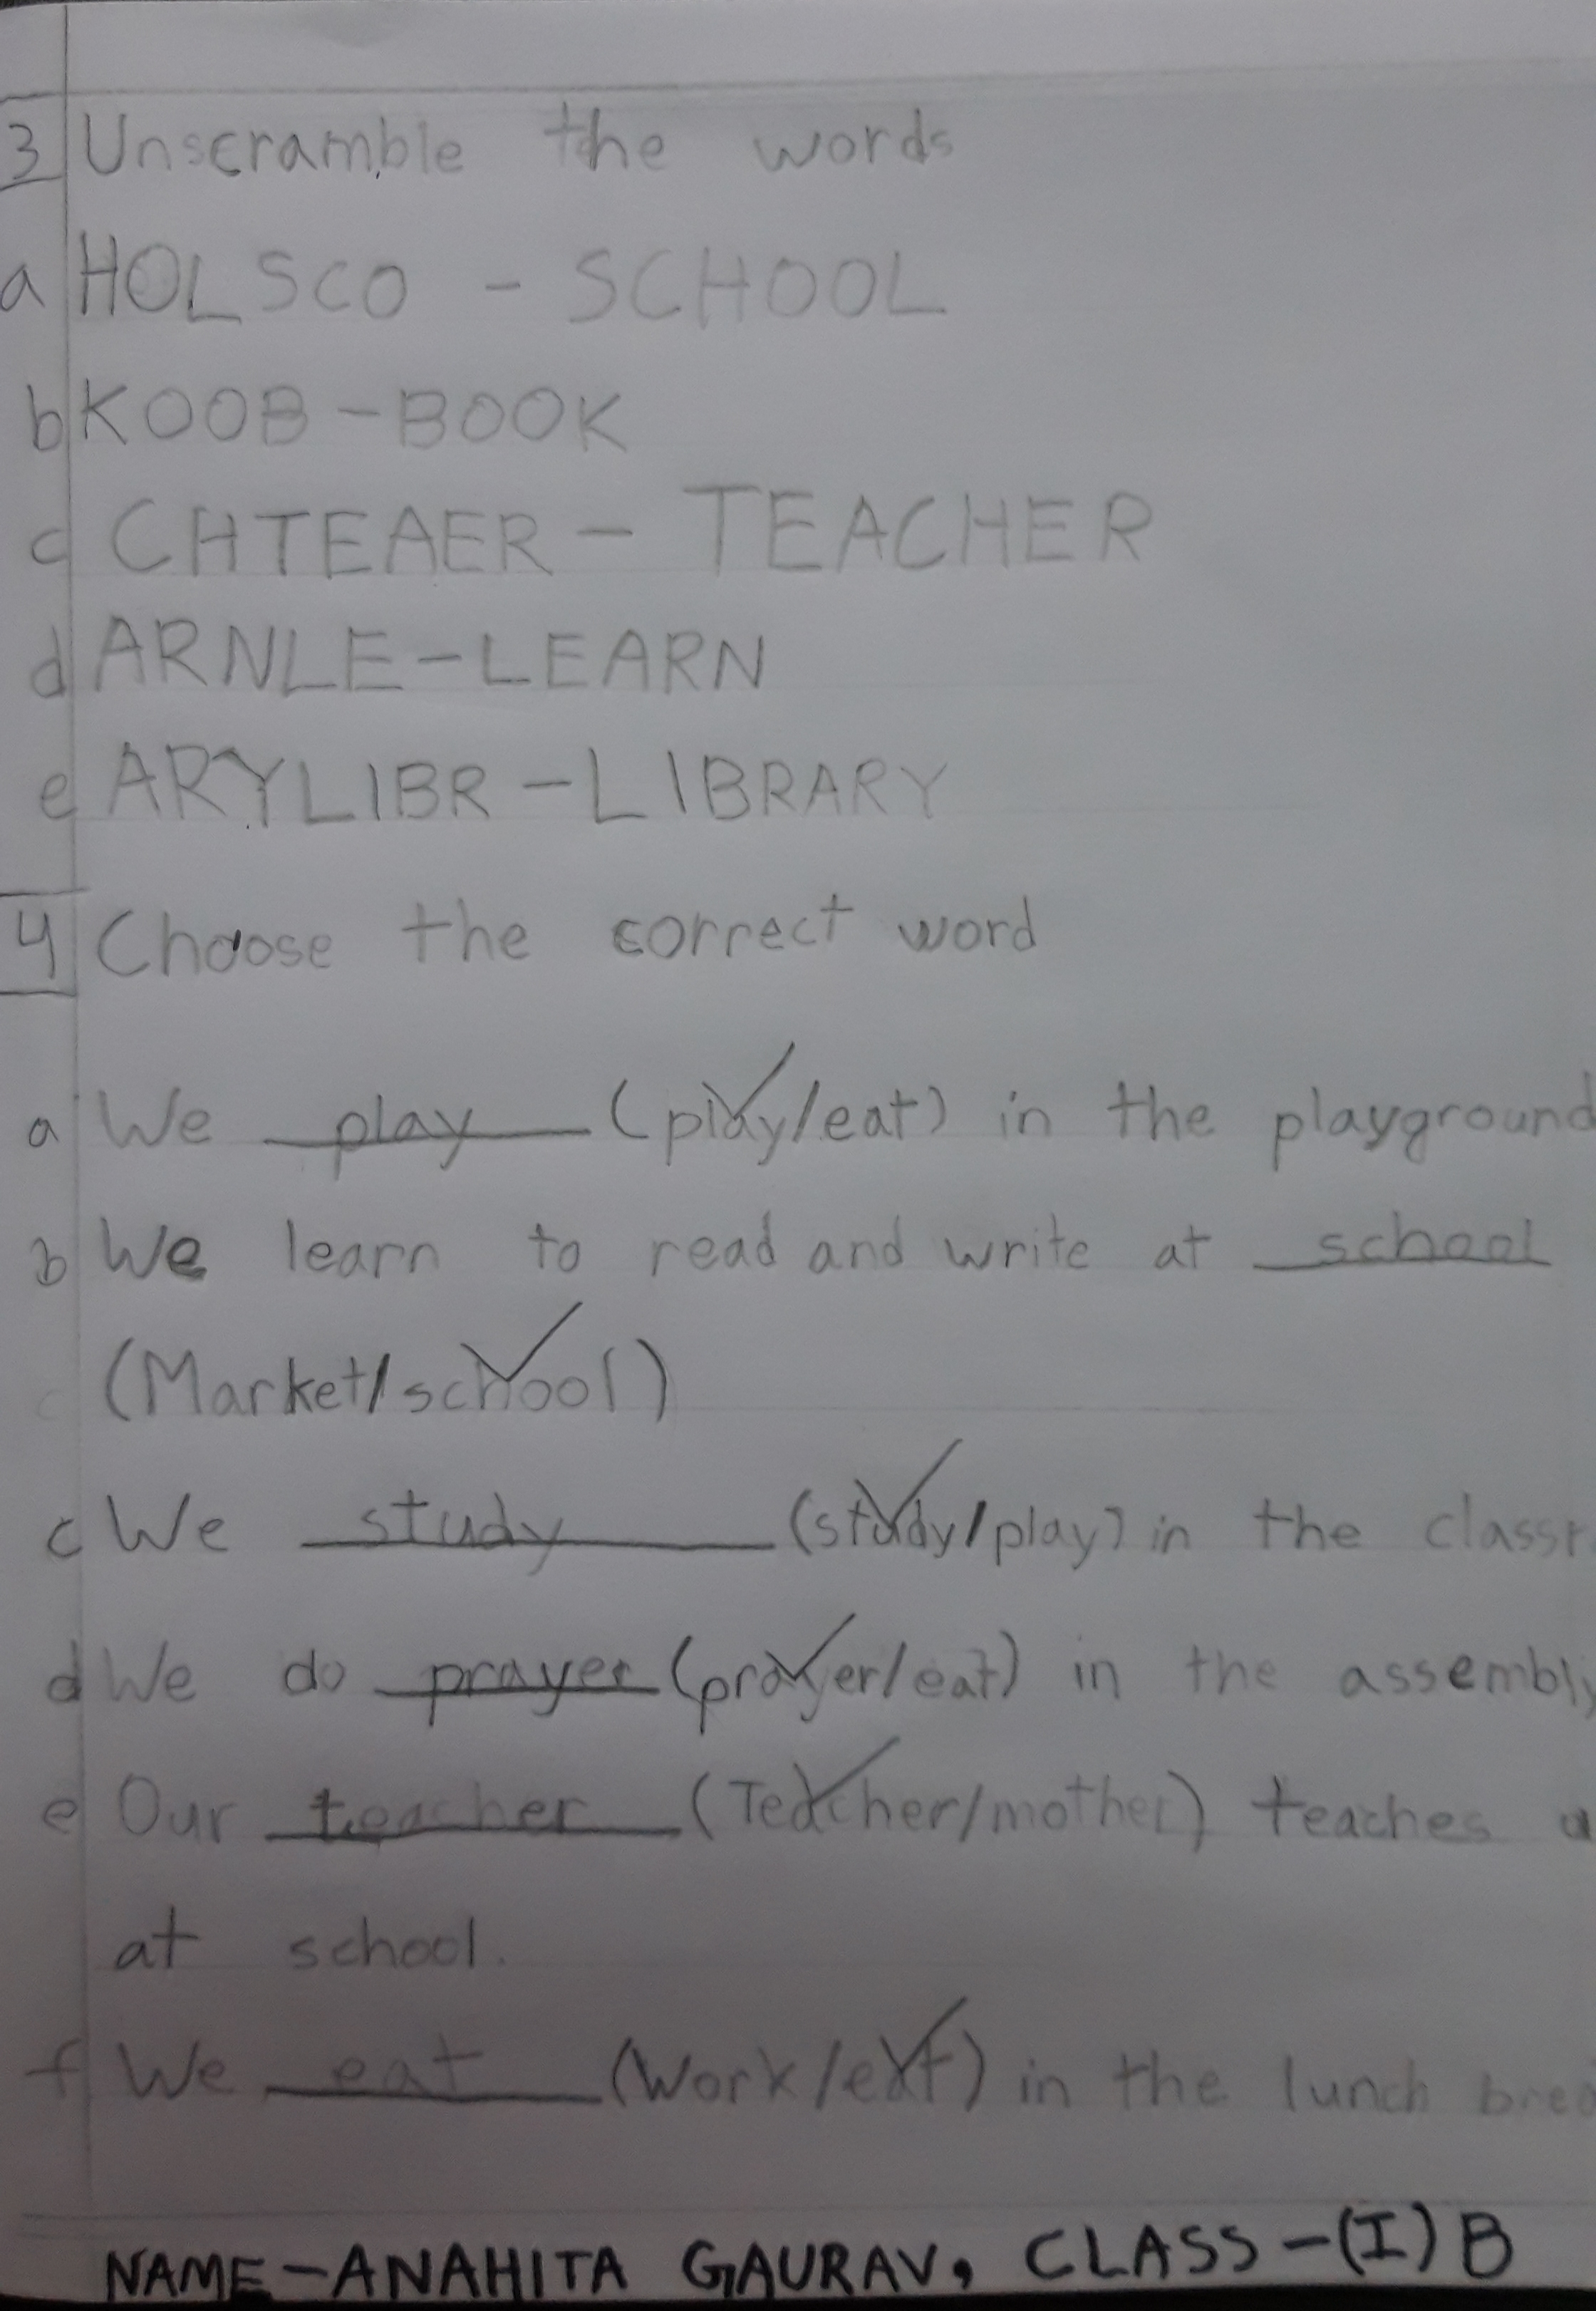 3 Unscramble the words
a HOLSCO - SCHOOL
b KOOB - BOOK
c CHTEAER - TEACHER
d ARNLE - LEARN
e ARYLIBR - LIBRARY
4 Choose the correct word
a We play (play/eat) in the playground
b We learn to read and write at school
(Market/school)
c We study (study/play) in the classr
d We do prayer (prayer/eat) in the assembly
e Our teacher (Teacher/mother) teaches
at school.
f We eat (Work/eat) in the lunch brea
NAME-ANAHITA GAURAV, CLASS-(I) B